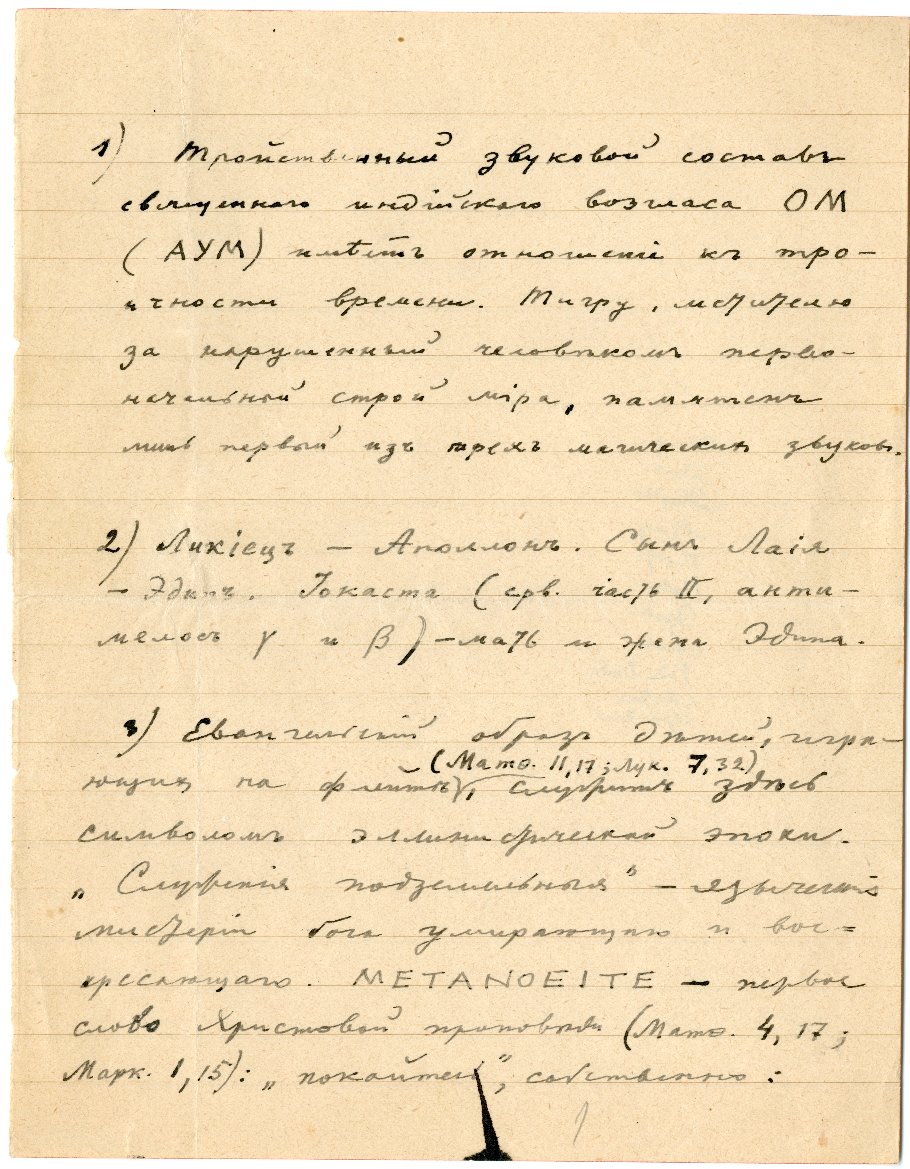 1) Тройственный звуковой составъ
священнаго индійскаго возгласа ОМ
(АУМ) имѣетъ отношеніе къ тро-
ичности времени. Тигру, мстителю
за нарушенный человѣкомъ перво-
начальный строй міра, памятенъ
лишь первый изъ трехъ магическихъ звуковъ.
2) Ликіецъ — Аполлонъ. Сынъ Лаія
— Эдипъ. Іокаста (срв. часть II, анти-
мелосъ γ и β) — мать и жена Эдипа.
3) Евангельскій образъ дѣтей, игра-
(Матѳ. 11,17; Лук. 7,32)
ющихъ на флейтѣ, служитъ здѣсь
символомъ эллинистической эпохи.
„Служенія подземельныя" — языческія
мистеріи бога умирающаго и вос=
кресающаго. METANOEITE — первое
слово Христовой проповѣди (Матѳ. 4, 17;
Марк. 1, 15): „покайтесь", собственно:
1